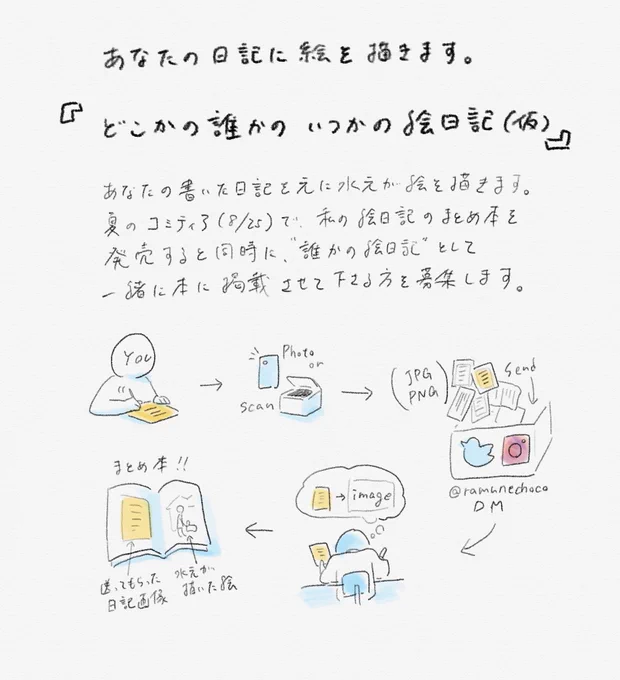 あなたの日記に絵を描きます。
『どこかの誰かのいつかの絵日記(仮)』
あなたの書いた日記を元に水元が絵を描きます。
夏のコミティア(8/25)で、私の絵日記のまとめ本を
発売すると同時に、"誰かの絵日記"として
一緒に本に掲載させて下さる方を募集します。
You
Photo
or
scan
(JPG
PNG)
Send
@ramunechoco
DM
image
まとめ本!!
送ってもらった
日記画像
水元が
描いた絵